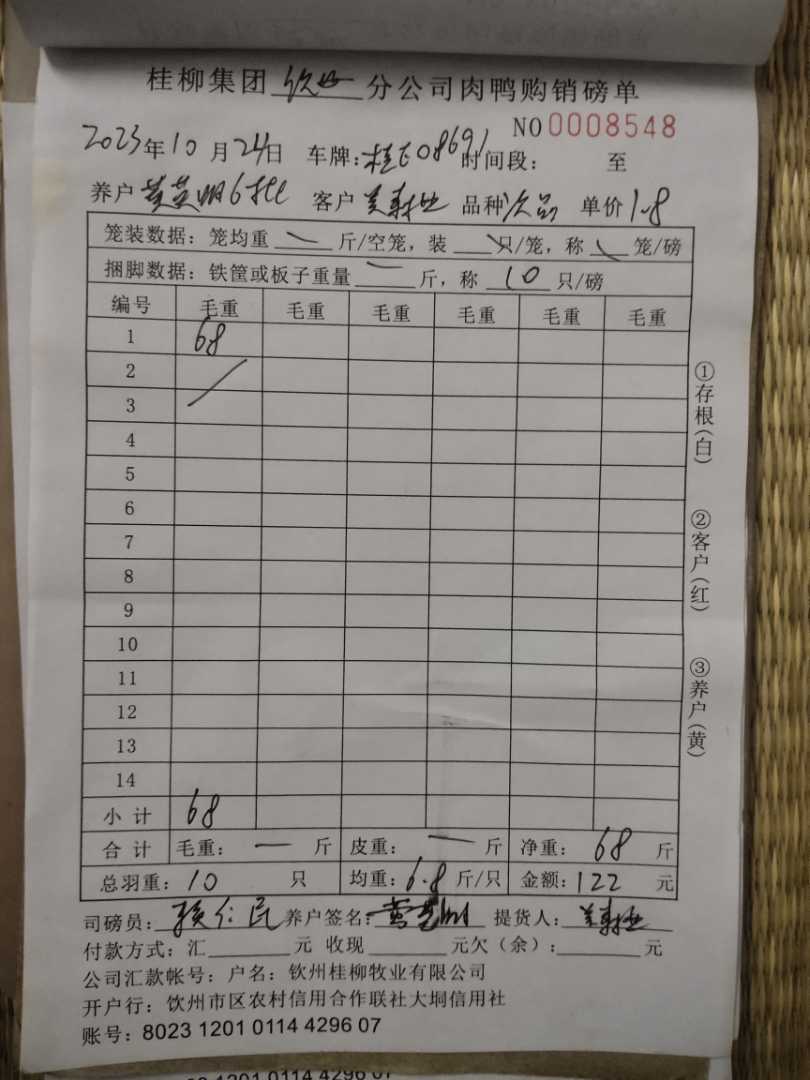 桂柳集团 钦州 分公司肉鸭购销磅单
NO 0008548
2023年10月24日 车牌:桂E08691 时间段: 至
养户 黄 明6批 客户 品种 次品 单价 1.8
笼装数据：笼均重 斤/空笼，装 只/笼，称 笼/磅
捆脚数据：铁筐或板子重量 一 斤，称 10 只/磅
编号 毛重 毛重 毛重 毛重 毛重 毛重
1 68
2
3
4
5
6
7
8
9
10
11
12
13
14
小 计 68
合 计 毛重： 一 斤 皮重： 一 斤 净重： 68 斤
总羽重：10 只 均重：6.8 斤/只 金额：122 元
司磅员： 仁民 养户签名： 提货人：
付款方式：汇 元 收现 元欠（余）： 元
公司汇款帐号：户名：钦州桂柳牧业有限公司
开户行：饮州市区农村信用合作联社大垌信用社
账号：8023 1201 0114 4296 07
①存根（白）
②客户（红）
③养户（黄）
1201 0114 4296 07